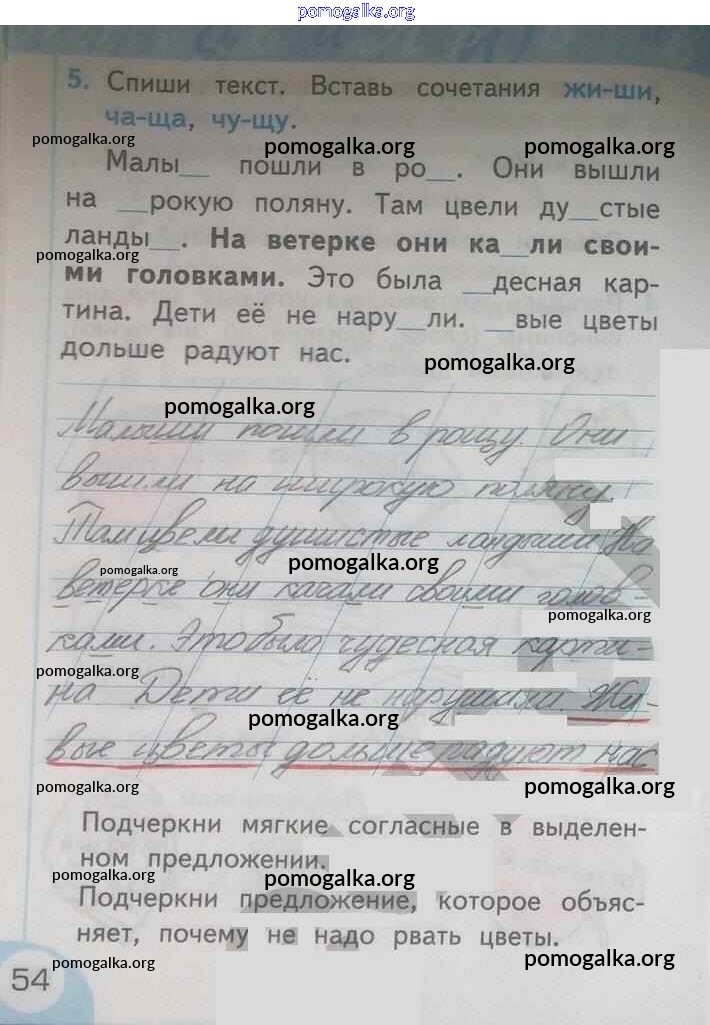 pomogalka.org
5. Спиши текст. Вставь сочетания жи-ши,
ча-ща, чу-щу.
pomogalka.org
pomogalka.org
pomogalka.org
Малы__ пошли в ро__. Они вышли
на __рокую поляну. Там цвели ду__стые
ланды__. На ветерке они ка__ли свои-
pomogalka.org
ми головками. Это была __десная кар-
тина. Дети её не нару__ли. __вые цветы
дольше радуют нас.
pomogalka.org
pomogalka.org
Малыши пошли в рощу. Они
вышли на широкую поляну.
Там цвели душистые ландыши. На
pomogalka.org
pomogalka.org
ветерке они качали своими голов-
pomogalka.org
ками. Это была чудесная карти-
pomogalka.org
на Дети её не нарушили. Жи-
pomogalka.org
вые цветы дольше радуют нас
pomogalka.org
pomogalka.org
Подчеркни мягкие согласные в выделен-
ном предложении.
pomogalka.org
pomogalka.org
Подчеркни предложение, которое объяс-
няет, почему не надо рвать цветы.
pomogalka.org
pomogalka.org
54